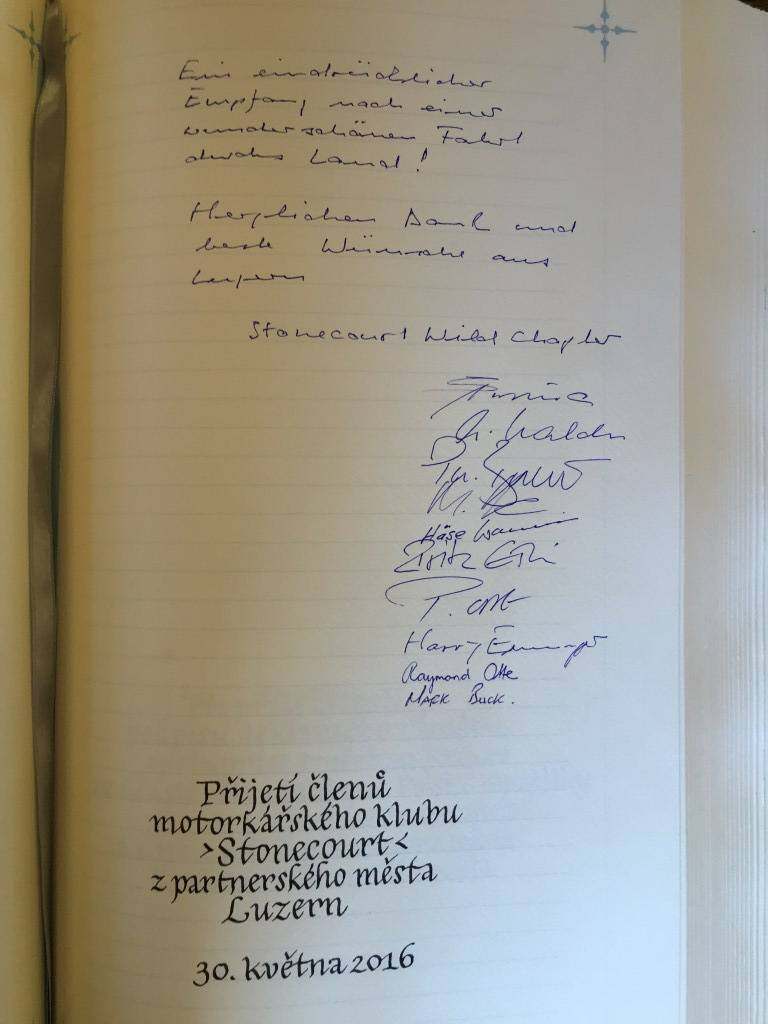 Ein eindrücklicher
Empfang nach einer
wunderschönen Fahrt
durchs Land!
Herzlichen Dank und
beste Wünsche aus
Luzern
Stonecourt Wild Chapter
Häse
P. Ott
Harry
Raymond Otte
Mark Buck.
Přijetí členů
motorkářského klubu
>Stonecourt<
z partnerského města
Luzern
30. května 2016